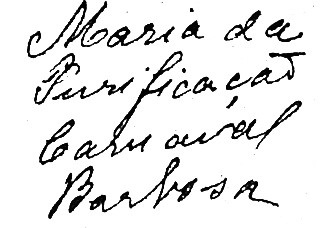 Maria da
Purificação
Carnaval
Barbosa